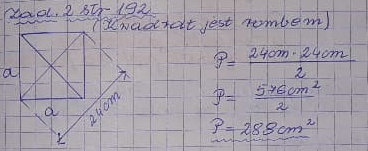 Zad. 2 str 192
(Kwadrat jest rombem)
a
a
24cm
P = 24cm · 24cm / 2
P = 576cm² / 2
P = 288cm²